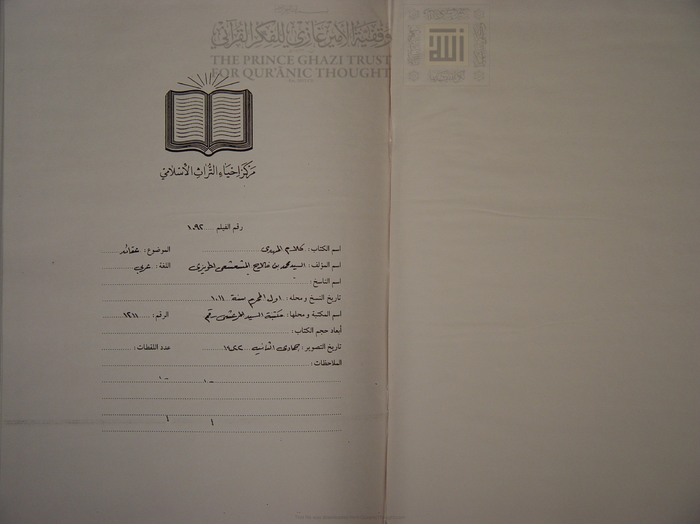 وقفية الأمير غازي للفكر القرآني
THE PRINCE GHAZI TRUST
FOR QUR'ANIC THOUGHT
الله
مركز إحياء التراث الإسلامي
رقم الفيلم .... ١٠٩٢
اسم الكتاب: كلام المهدي الموضوع: عقائد
اسم المؤلف: السيد محمد بن فلاح المشعشعي الحويزي اللغة: عربي
اسم الناسخ:
تاريخ النسخ ومحله: اول المحرم سنة ١٠١١
اسم المكتبة ومحلها: مكتبة السيد المرعشي قم الرقم: ١٢١١
أبعاد حجم الكتاب:
تاريخ التصوير: جمادى الثانية عدد اللقطات:
الملاحظات: